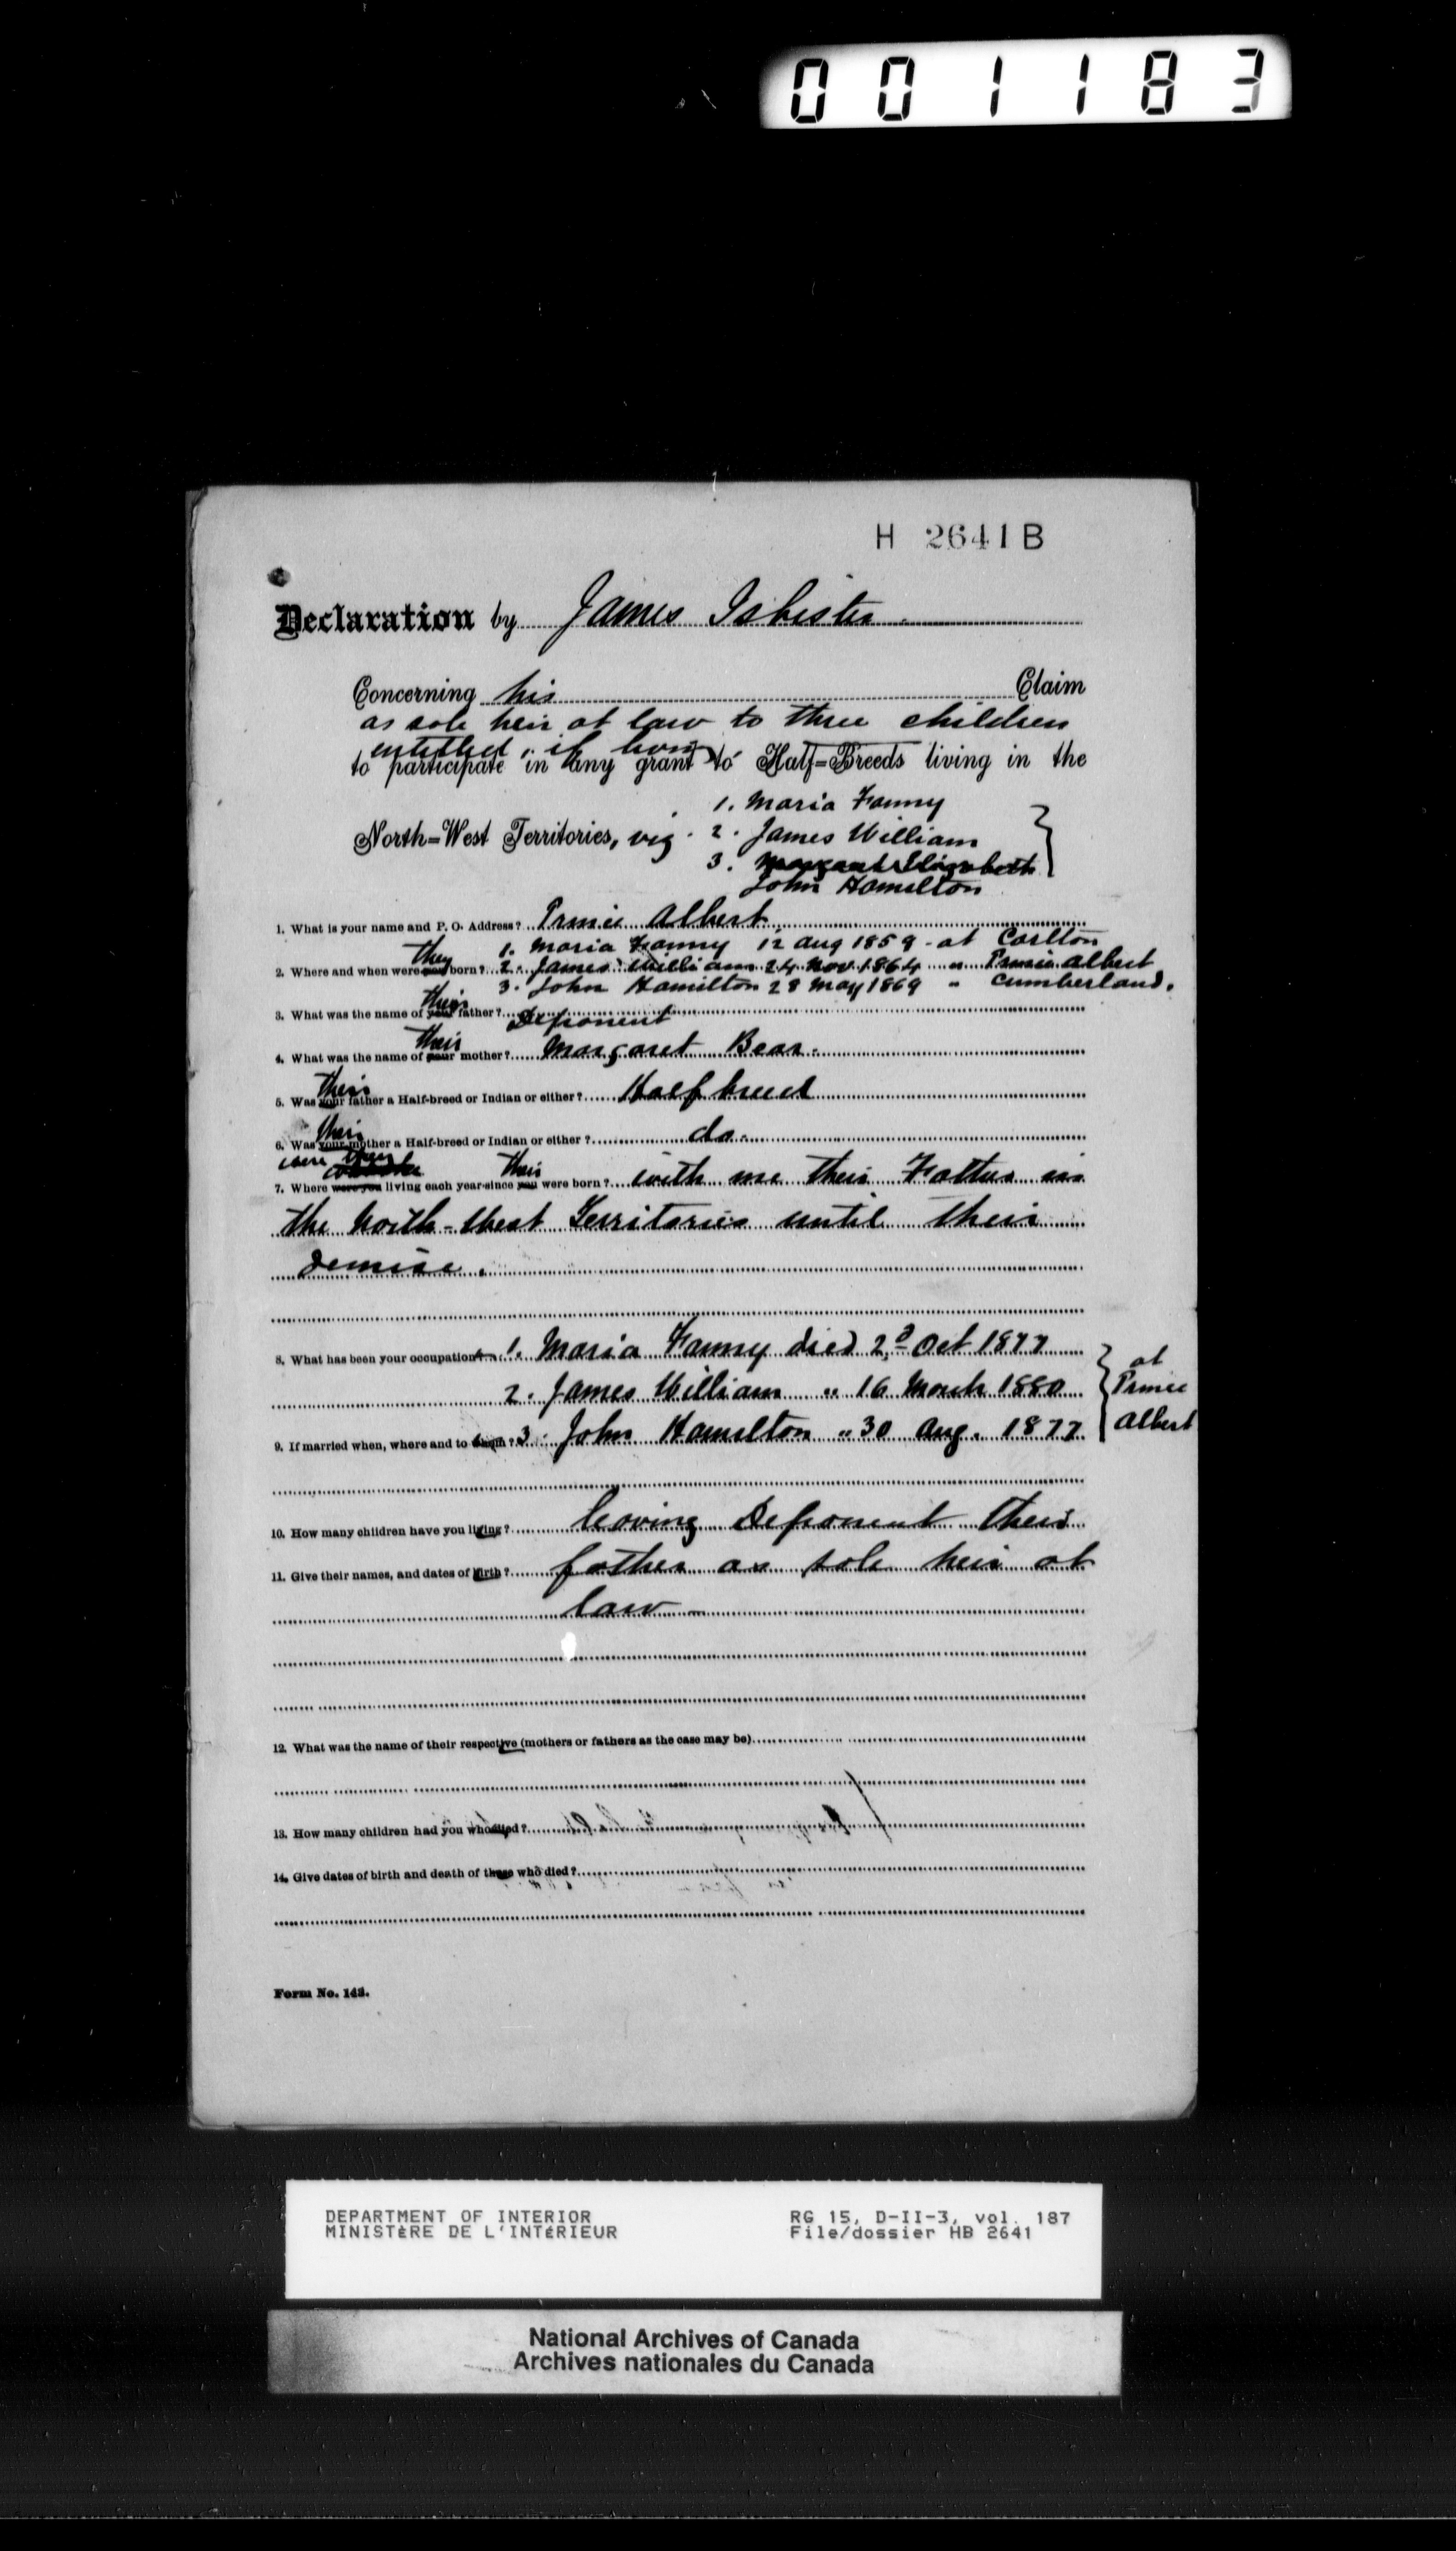 001183
H 2641 B
Declaration by James Isbister.
Concerning his Claim
as sole heir at law to three children
entitled, if living
to participate in any grant to Half-Breeds living in the
1. Maria Fanny
North-West Territories, viz. 2. James William
3. Margaret Elizabeth
John Hamilton
1. What is your name and P. O. Address? Prince Albert
they 1. Maria Fanny 12 Aug 1859 - at Carlton
2. Where and when were you born? 2. James William 24 Nov. 1864 " Prince Albert
3. John Hamilton 28 May 1869 " Cumberland.
their
3. What was the name of your father? Deponent
their
4. What was the name of your mother? Margaret Bear.
their
5. Was your father a Half-breed or Indian or either? Half breed
their
6. Was your mother a Half-breed or Indian or either? do.
were they their
7. Where were you living each year since you were born? with me their Father in
the North-West Territories until their
demise.
8. What has been your occupation 1. Maria Fanny died 2d Oct 1877
2. James William " 16 March 1880
at Prince Albert
9. If married when, where and to whom? 3. John Hamilton " 30 Aug. 1877
10. How many children have you living? leaving Deponent their
11. Give their names, and dates of birth? father as sole heir at
law
12. What was the name of their respective (mothers or fathers as the case may be)
13. How many children had you who died?
14. Give dates of birth and death of those who died?
Form No. 143.
DEPARTMENT OF INTERIOR RG 15, D-II-3, vol. 187
MINISTÈRE DE L'INTÉRIEUR File/dossier HB 2641
National Archives of Canada
Archives nationales du Canada